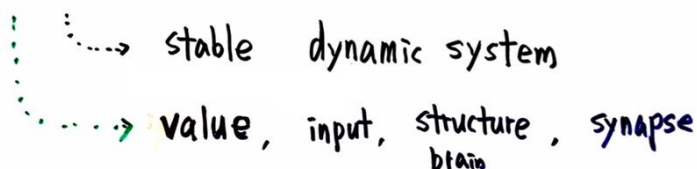 stable dynamic system
value, input, structure, synapse
brain